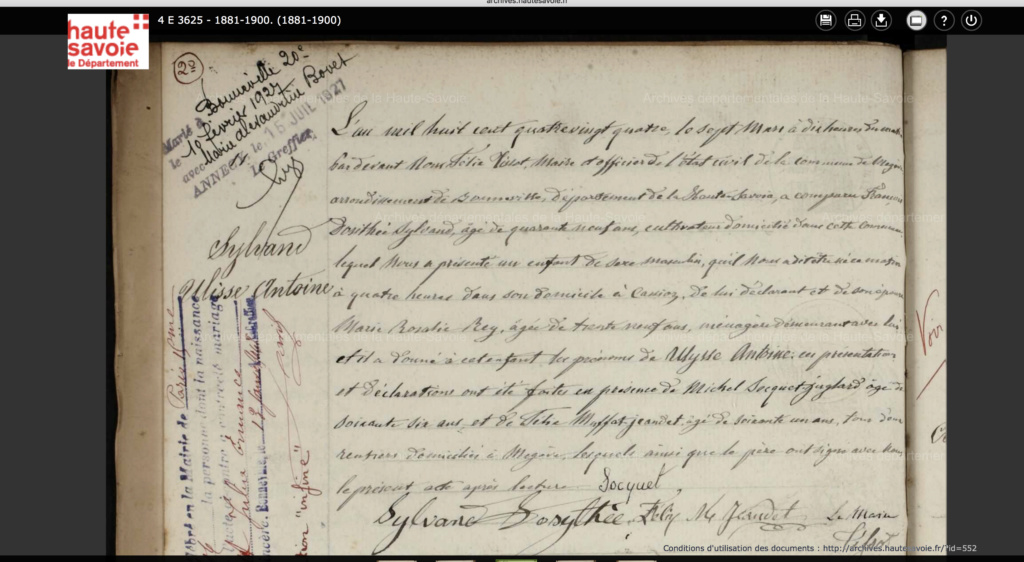 archives.hautesavoie.fr
4 E 3625 - 1881-1900. (1881-1900)
haute
savoie
le Département
20
Marié à Bonneville 20e
le 19 février 1927
avec Marie Alexandrine Bovet
ANNECY, le 16 JUIL 1927
Le Greffier,
Sylvand
Ulisse Antoine
L'an mil huit cent quatre vingt quatre, le sept Mars à dix heures du matin
par devant Nous Félix Tissot, Maire et officier de l'état civil de la commune de Megève
arrondissement de Bonneville, département de la Haute-Savoie, a comparu François
Dorithée Sylvand, âgé de quarante neuf ans, cultivateur domicilié dans cette commune
lequel Nous a présenté un enfant de sexe masculin, qu'il Nous a dit être né ce matin
à quatre heures dans son domicile à Cassioz, de lui déclarant et de son épouse
Marie Rosalie Rey, âgée de trente neuf ans, ménagère demeurant avec lui
et il a donné à cet enfant les prénoms de Ulysse Antoine. ces présentation
et déclarations ont été faites en présence de Michel Socquet-juglard âgé de
soixante six ans, et de Félix Muffat-jeandet âgé de soixante un ans, tous deux
rentiers domiciliés à Megève, lesquels ainsi que le père ont signé avec Nous
le présent acte après lecture Socquet
Sylvand Dorythée. Félix M Jeandet Le Maire
Tissot
Mairie de Paris
la personne dont la naissance
mariage
"infine"
Voir
Archives départementales de la Haute-Savoie
Conditions d'utilisation des documents : http://archives.hautesavoie.fr/?id=552